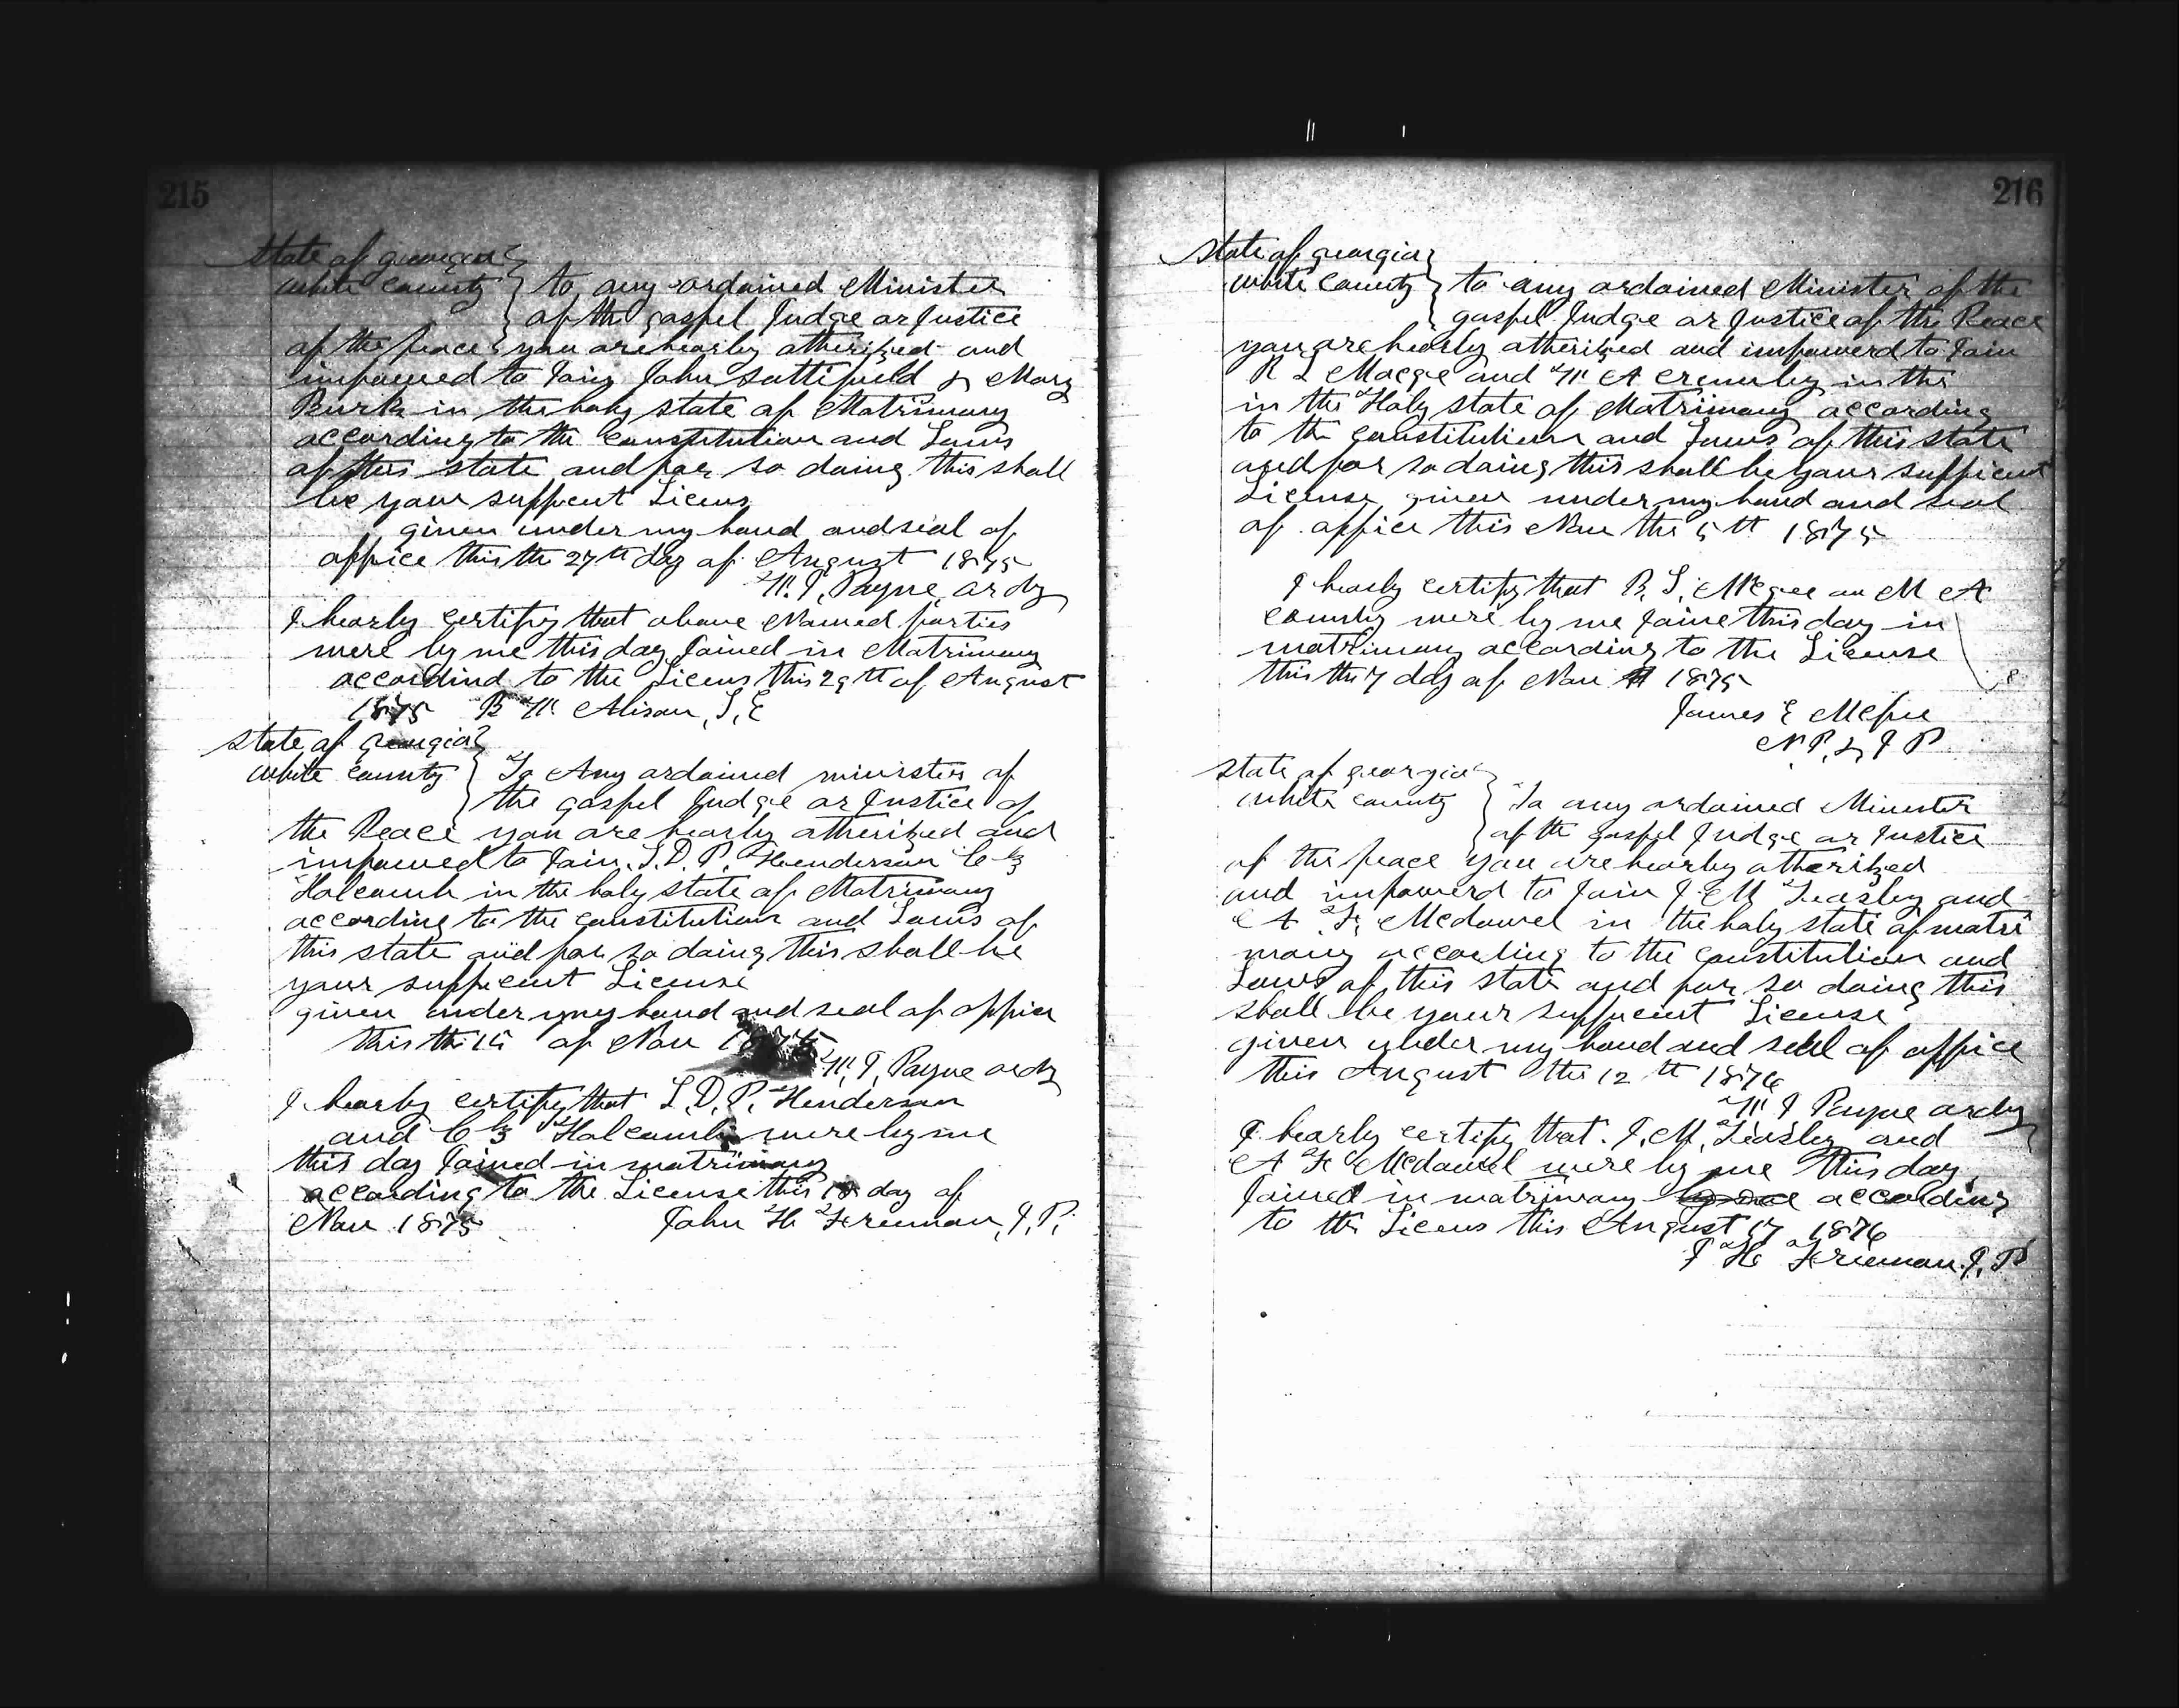 215
State of georgia
white county to any ordained Minister
of the gospel Judge or Justice
of the peace you are hearby atherized and
impowred to Join John Sattifield & Mary
Burk in the holy state of Matrimony
according to the constitution and Laws
of this state and for so doing this shall
be your suffcent Licens
given under my hand and seal of
office this the 27th day of August 1875
W. I. Payne ordy
I hearby certify that above Named parties
were by me this day Joined in Matrimony
accordind to the Licens this 29th of August
1875 B W Alison, J, E
State of georgia
white county To Any ordained minister of
the gospel Judge or Justice of
the Peace you are hearby atherized and
impowred to Join L. D. P. Henderson
Holcomb in the holy state of Matrimony
according to the constitution and Laws of
this state and for so doing this shall be
your suffucent License
given under my hand and seal of office
this the 15 of Nov 1875
W, I, Payne ordy
I hearby certify that L. D. P. Henderson
and Holcomb were by me
this day Joined in matrimony
according to the License this 18 day of
Nov 1875 John H Freeman, J. P.
216
State of georgia
white County to any ordained Minister of the
gospel Judge or Justice of the Peace
you are hearby atherized and impowerd to Join
R L Macge and M A crumby in the
in the Holy state of Matrimony according
to the constitution and Laws of this state
and for so doing this shall be your sufficent
License given under my hand and seal
of office this Nov the 5th 1875
I hearby certify that R. L. McGee an M A
were by me Joine this day in
matrimony according to the License
this the 7 day of Nov 1875
James E McFee
N. P. & J P
State of georgia
white county To any ordained Minister
of the gospel Judge or Justice
of the peace you are hearby atherized
and impowerd to Join J. M Teasley and
A F, Mcdowel in the holy state of matri
mony accorling to the constitution and
Laws of this state and for so doing this
shall be your suffucent License
given under my hand and seal of office
this August the 12th 1876
W I Payne ordy
I hearby certify that J. M. Teasley and
A F Mcdowel were by me this day
Joined in matrimony according
to the Licens this August 17 1876
J H Freeman J. P